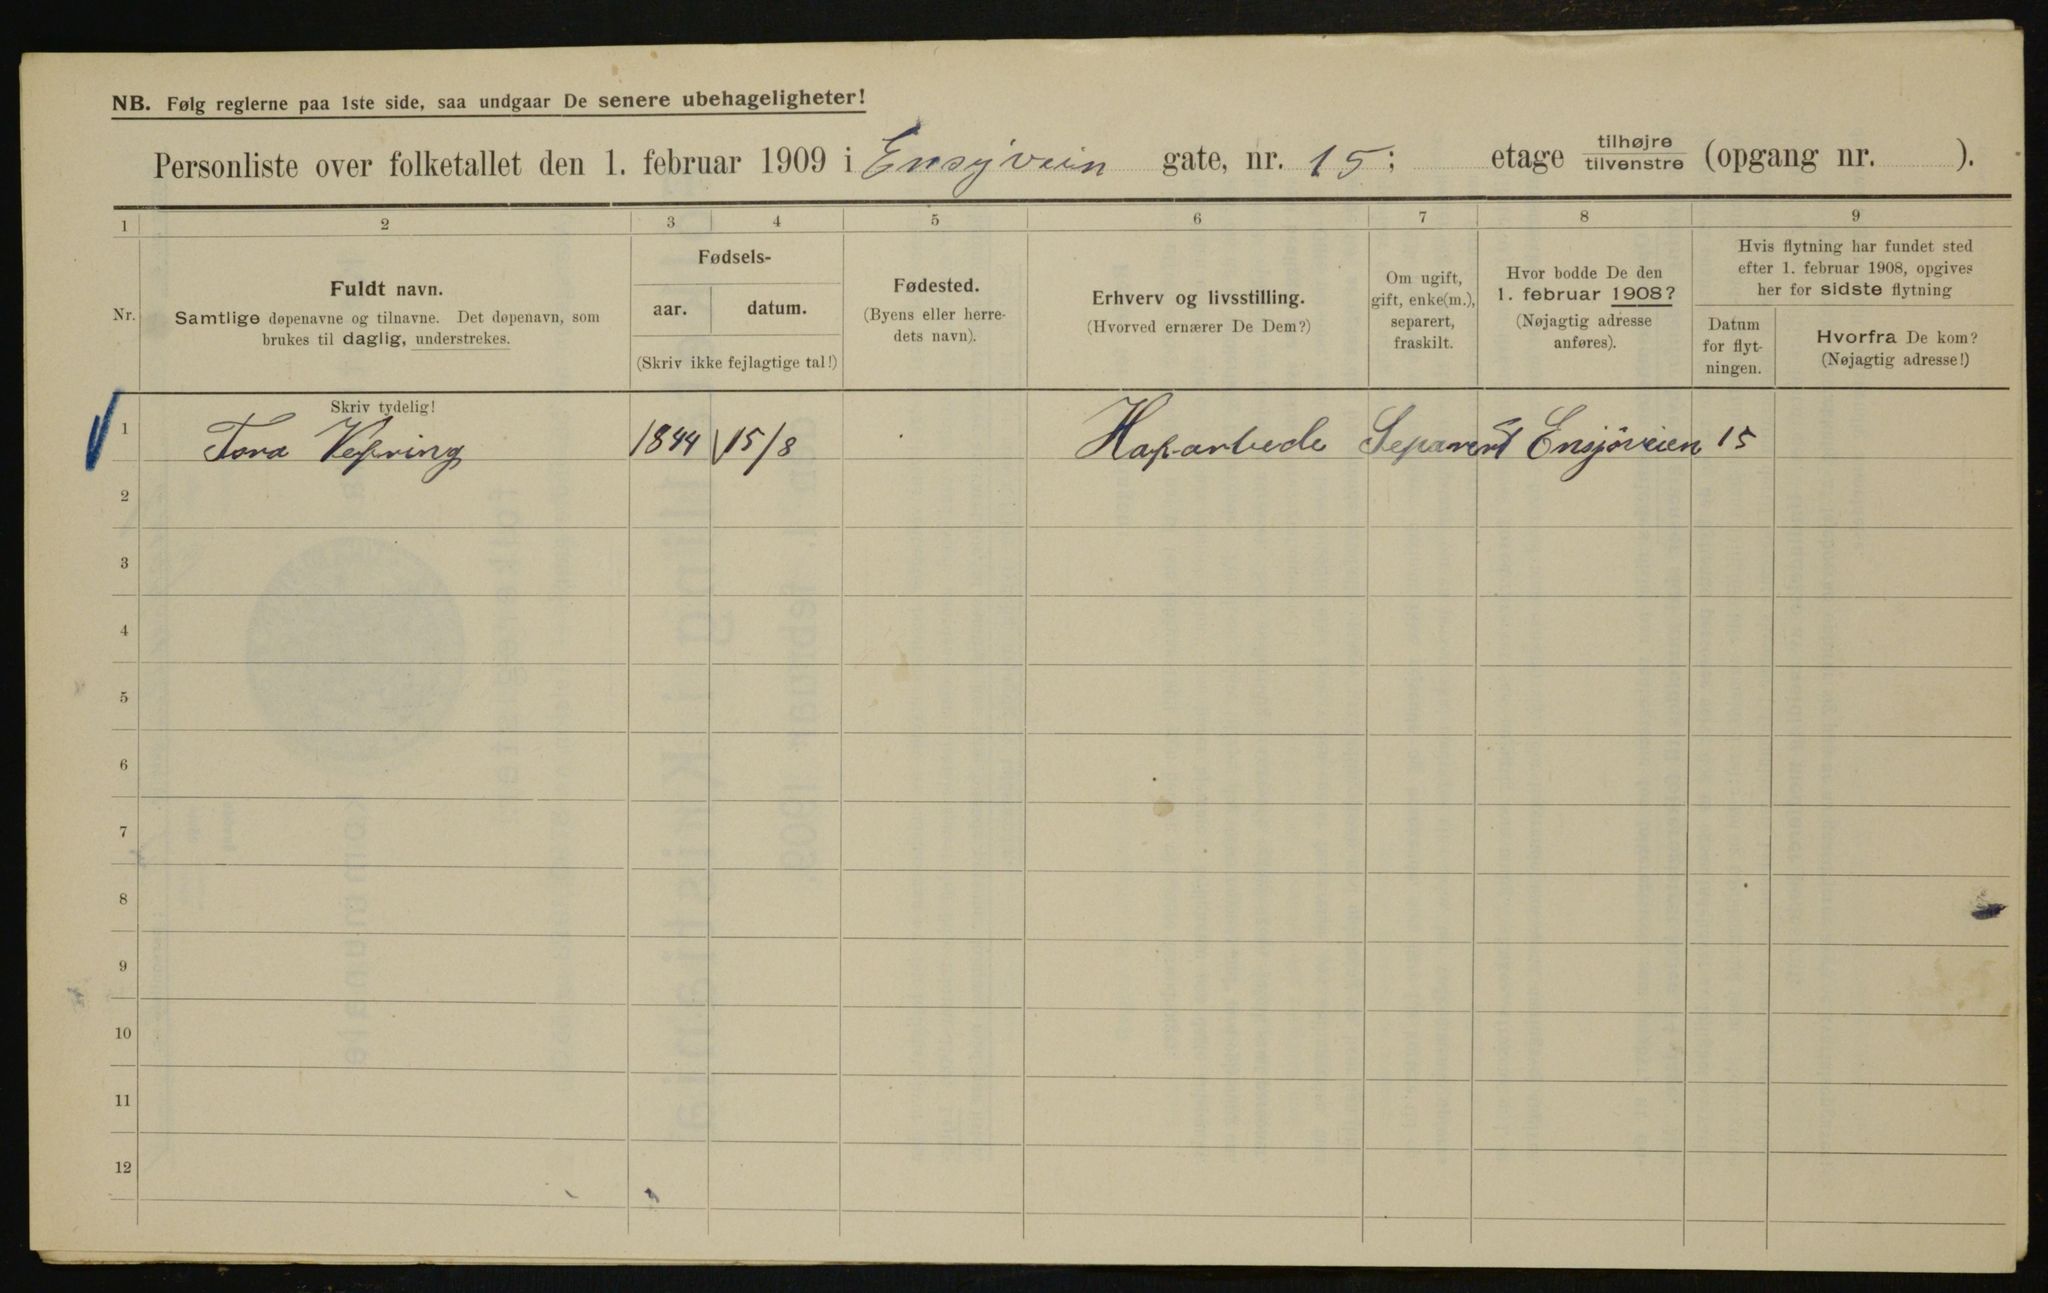 NB. Følg reglerne paa 1ste side, saa undgaar De senere ubehageligheter!
Personliste over folketallet den 1. februar 1909 i Ensjveien gate, nr. 15; etage tilhøjre tilvenstre (opgang nr. ).
1 2 3 4 5 6 7 8 9
Nr.
Fuldt navn.
Samtlige døpenavne og tilnavne. Det døpenavn, som
brukes til daglig, understrekes.
Fødsels-
aar. datum.
(Skriv ikke fejlagtige tal!)
Fødested.
(Byens eller herre-
dets navn).
Erhverv og livsstilling.
(Hvorved ernærer De Dem?)
Om ugift,
gift, enke(m.),
separert,
fraskilt.
Hvor bodde De den
1. februar 1908?
(Nøjagtig adresse
anføres).
Hvis flytning har fundet sted
efter 1. februar 1908, opgives
her for sidste flytning
Datum
for flyt-
ningen.
Hvorfra De kom?
(Nøjagtig adresse!)
Skriv tydelig!
1 Tora Vepring 1844 15/8 Haparbede Separert Ensjöveien 15
2
3
4
5
6
7
8
9
10
11
12